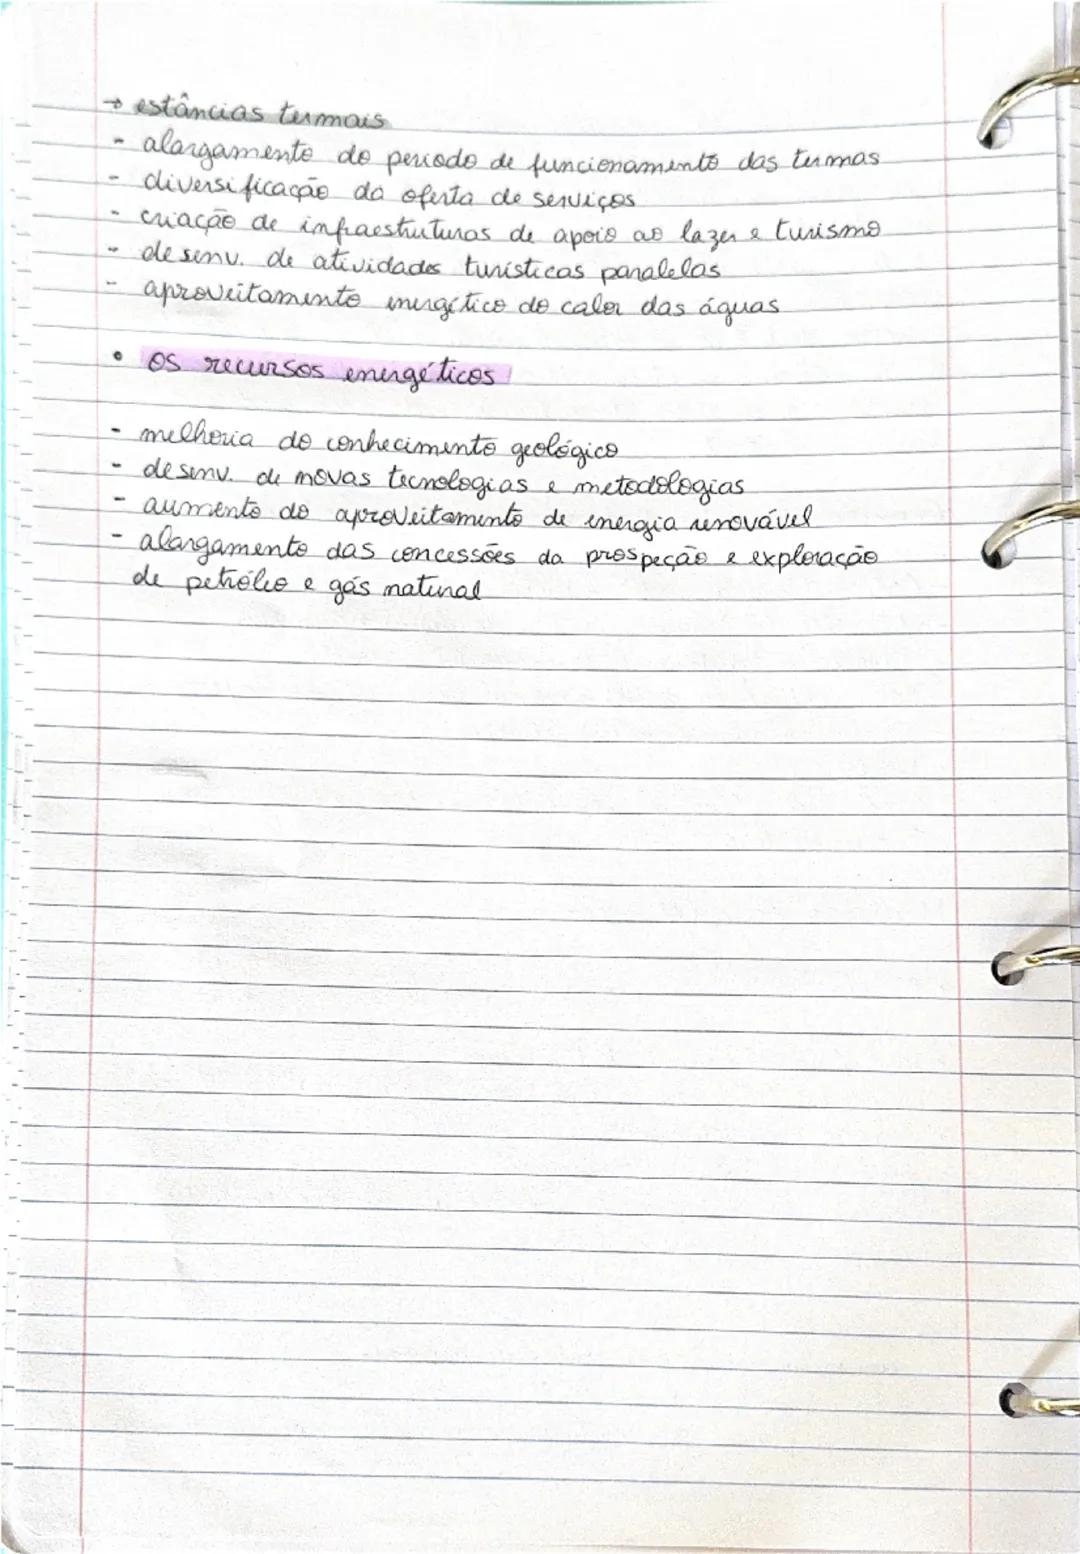 → estâncias termais
- alargamento do período de funcionamento das termas
- diversificação da oferta de serviços
- criação de infraestruturas de apoio ao lazer e turismo
- desenv. de atividades turísticas paralelas
- aproveitamento energético do calor das águas
• os recursos energéticos
- melhoria do conhecimento geológico
- desenv. de novas tecnologias e metodologias
- aumento do aproveitamento de energia renovável
- alargamento das concessões da prospeção e exploração
de petróleo e gás natural